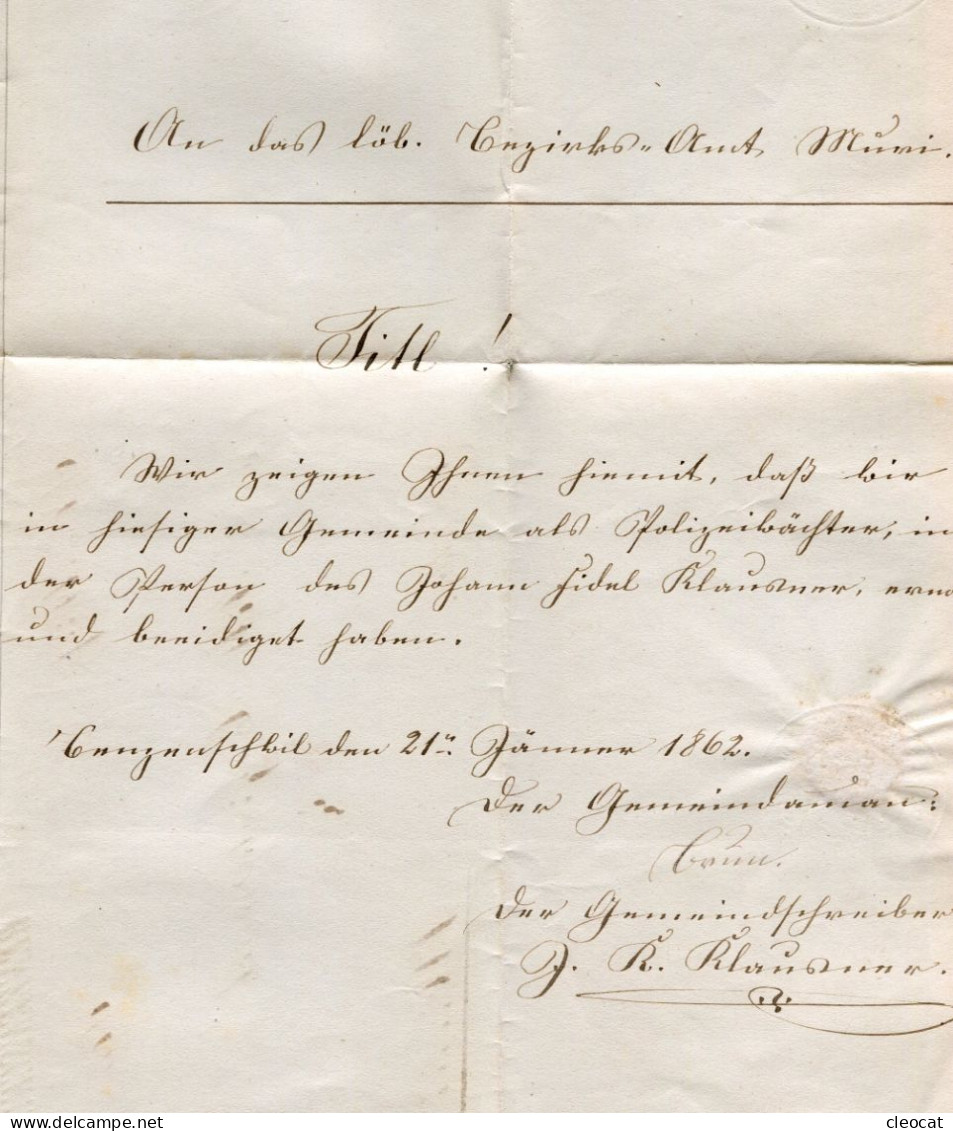 An das löb. Bezirks-Amt Muri.
Titl !
Wir zeigen Ihnen hiemit, daß wir
in hiesiger Gemeinde als Polizeiwächter, in
der Person des Johann Fidel Klausner, erna
und beeidiget haben.
Benzenschwil den 21n. Jänner 1862.
Der Gemeindaman:
Brun.
Der Gemeindschreiber
J. K. Klausner.
cleocat